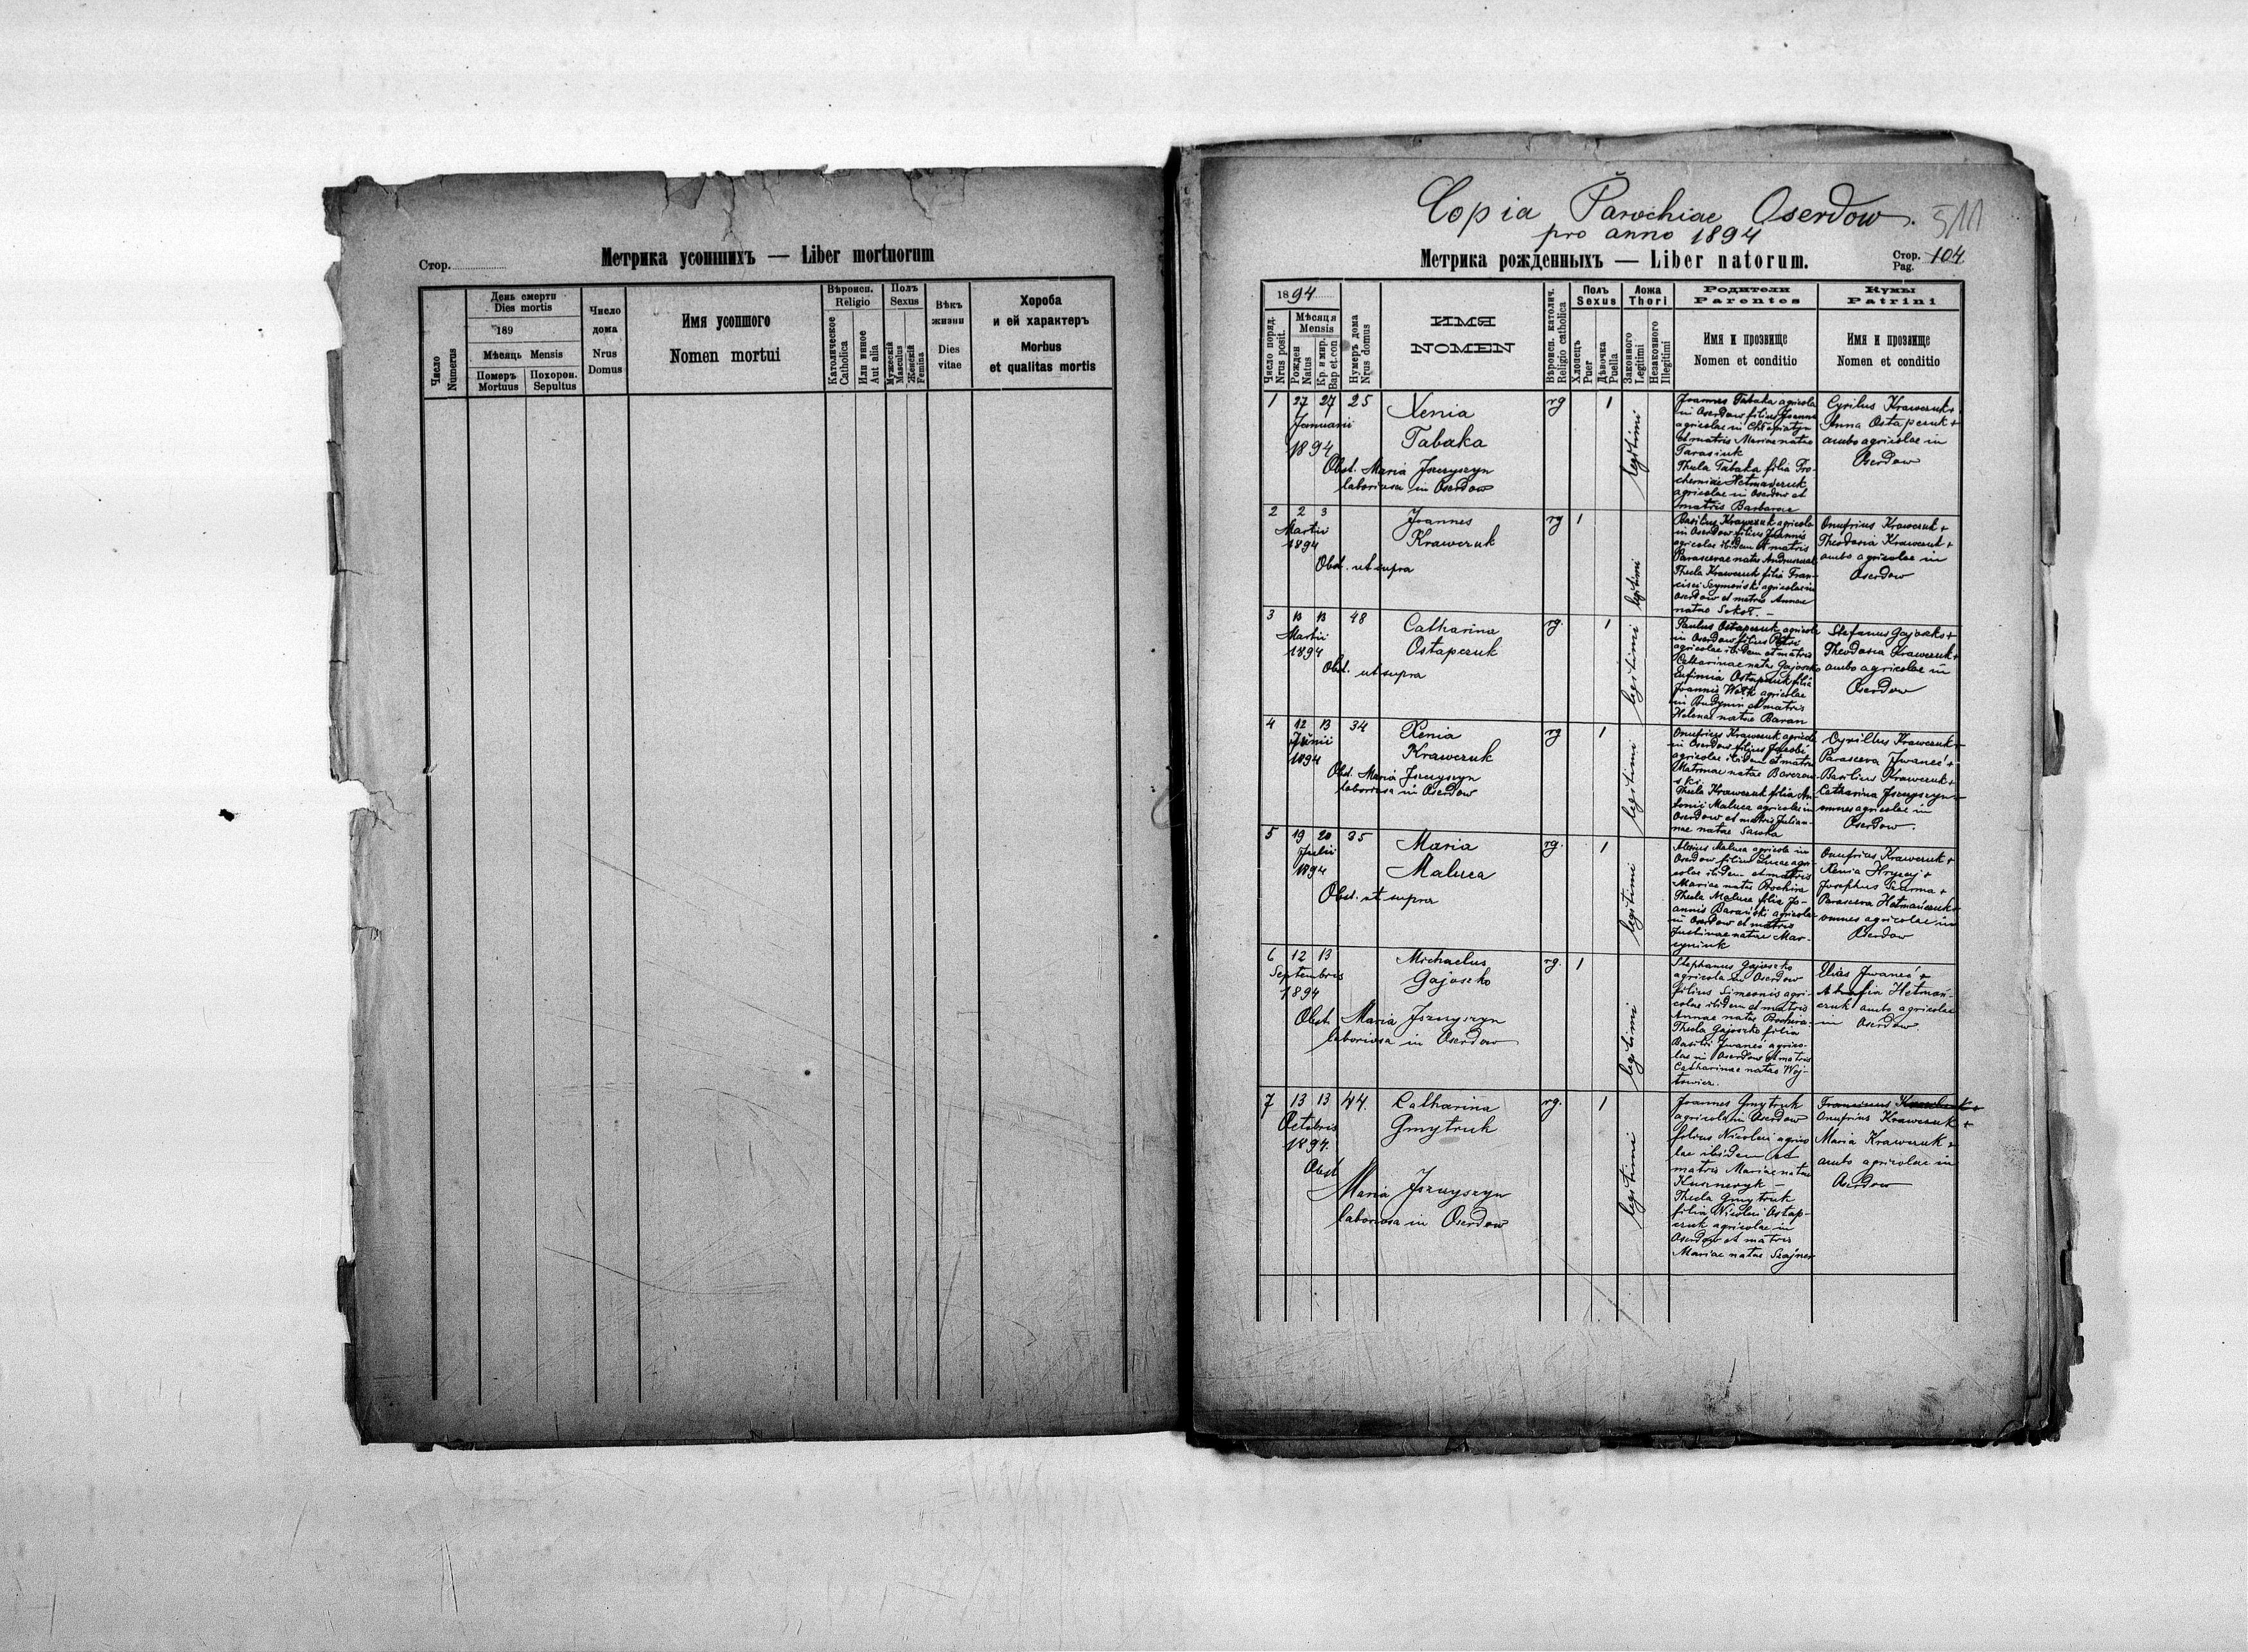 Стор.
Метрика усопшихъ — Liber mortuorum
Число
Numerus
День смерти
Dies mortis
189
Мѣсяць Mensis
Померъ
Mortuus
Похорон.
Sepultus
Число
дома
Nrus
Domus
Имя усопшого
Nomen mortui
Вѣроисп.
Religio
Католическое
Catholica
Или инное
Aut alia
Полъ
Sexus
Мужескій
Masculus
Женскій
Femina
Вѣкъ
жизни
Dies
vitae
Хороба
и ей характеръ
Morbus
et qualitas mortis
Copia Parochiae Oserdow.
511
pro anno 1894
Метрика рожденныхъ — Liber natorum.
Стор.
Pag.
104
1894
Число поряд.
Nrus posit.
Мѣсяця
Mensis
Рожден
Natus
Кр. и мир.
Bap et con
Нумеръ дома
Nrus domus
ИМЯ
NOMEN
Вѣроисп. католич.
Religio catholica
Полъ
Sexus
Хлопець
Puer
Дѣвочка
Puella
Ложа
Thori
Законного
Legitimi
Незаконного
Illegitimi
Родители
Parentes
Имя и прозвище
Nomen et conditio
Кумы
Patrini
Имя и прозвище
Nomen et conditio
1 27 27 25
Januarii
1894
Xenia
Tabaka
Obst. Maria Jszczyszyn
laboriosa in Oserdow
rg 1
legitimi
Joannes Tabaka agricola
in Oserdow filius Joannis
agricolae in Chłopiatyn
et matris Mariae natae
Tarasiuk
Thecla Tabaka filia Pro-
agricolae in Oserdow et
matris Barbarae
Cyrilus Krawczuk +
Anna Ostapczuk +
ambo agricolae in
Oserdow
2 2 3
Martii
1894
Joannes
Krawczuk
Obst. ut supra
rg 1
legitimi
Basilius Krawczuk agricola
in Oserdow filius Joannis
agricolae ibidem et matris
Parascevae natae
Thecla Krawczuk filia Fran-
cisci Szymoński agricolae in
Oserdow et matris Annae
natae Sokoł. —
Onufrius Krawczuk +
Theodosia Krawczuk +
ambo agricolae in
Oserdow
3 13 13 48
Martii
1894
Catharina
Ostapczuk
Obst. ut supra
rg. 1
legitimi
Paulus Ostapczuk agricola
in Oserdow filius Petri
agricolae ibidem et matris
Catharinae natae Gajoszko
Eufimia Ostapczuk filia
Joannis Wołk agricolae
in Budynin et matris
Helenae natae Baran
Stefanus Gajoszko +
Theodosia Krawczuk +
ambo agricolae in
Oserdow
4 12 13 34
Junii
1894
Xenia
Krawczuk
Obst. Maria Jszczyszyn
laboriosa in Oserdow
rg 1
legitimi
Onufrius Krawczuk agricola
in Oserdow filius Jacobi
agricolae ibidem et matris
Thecla Krawczuk filia An-
tonii Maluca agricolae in
Oserdow et matris Julian-
nae natae Sawka
Cyrillus Krawczuk +
Parasceva Jwaneć +
Basilius Krawczuk +
Catharina Jszczyszyn +
omnes agricolae in
Oserdow.
5 19 20 35
Julii
1894
Maria
Maluca
Obst. ut supra
rg. 1
legitimi
Alexius Maluca agricola in
Oserdow filius Lucae agri-
colae ibidem et matris
Mariae natae Prochira
Thecla Maluca filia Jo-
annis Barański agricolae
in Oserdow et matris
Justinae natae Mar-
cyniuk
Onufrius Krawczuk +
Xenia Hrycaj +
Josephus Szarma +
Parasceva Hetmańczuk +
omnes agricolae in
Oserdow
6 12 13
Septembris
1894
Michaelus
Gajoszko
Obst. Maria Jszczyszyn
laboriosa in Oserdow
rg. 1
legitimi
Stephanus Gajoszko
agricola in Oserdow
filius Simeonis agri-
colae ibidem et matris
Annae natae Prochira
Thecla Gajoszko filia
Basilii Jwaneć agrico-
lae in Oserdow et matris
Catharinae natae Woj-
towicz.
Elias Jwaneć +
Hetmań-
czuk ambo agricolae
in Oserdow
7 13 13 44.
Octobris
1894.
Catharina
Gmytruk
Obst
Maria Jszczyszyn
laboriosa in Oserdow
rg. 1
legitimi
Joannes Gmytruk
agricola in Oserdow
filius Nicolai agrico
lae ibidem et
matris Mariae natae
Kuszneryk —
Thecla Gmytruk
filia Nicolai Ostap-
czuk agricolae in
Oserdow et matris
Mariae natae Szajner
Franciscus
Onufrius Krawczuk +
Maria Krawczuk +
ambo agricolae in
Oserdow